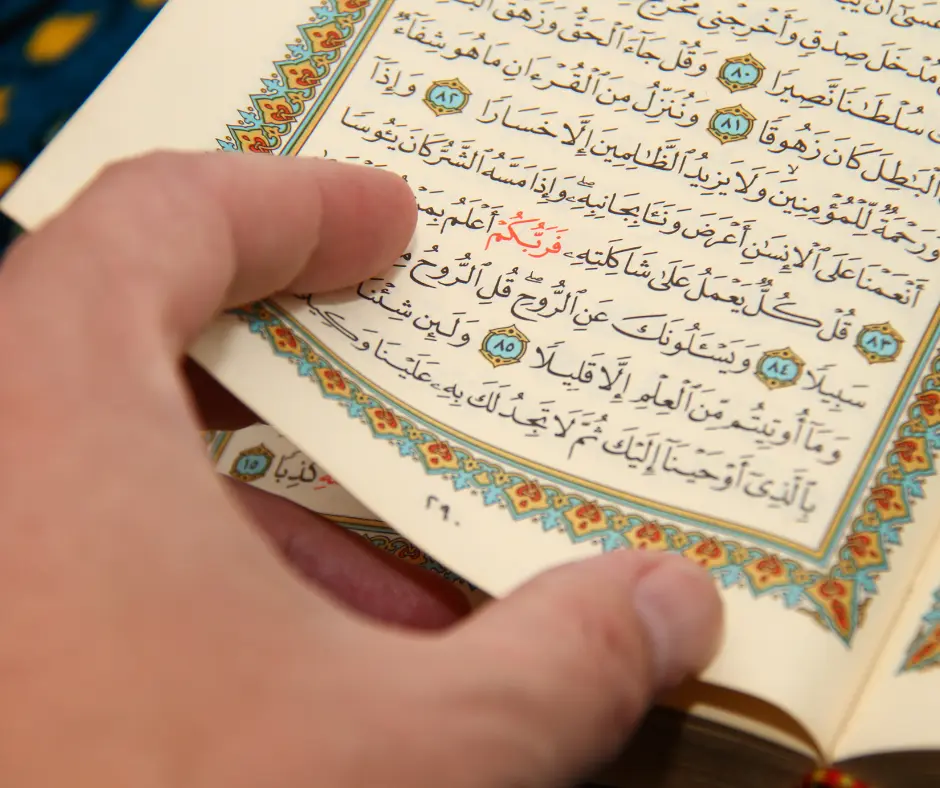 عَسَىٰٓ أَن
مُدْخَلَ صِدْقٍ وَأَخْرِجْنِى مُخْرَجَ
سُلْطَٰنًا نَّصِيرًا ٨٠ وَقُلْ جَآءَ ٱلْحَقُّ وَزَهَقَ
ٱلْبَٰطِلَ كَانَ زَهُوقًا ٨١ وَنُنَزِّلُ مِنَ ٱلْقُرْءَانِ مَا هُوَ شِفَآءٌ
وَرَحْمَةٌ لِّلْمُؤْمِنِينَ وَلَا يَزِيدُ ٱلظَّٰلِمِينَ إِلَّا خَسَارًا ٨٢ وَإِذَآ
أَنْعَمْنَا عَلَى ٱلْإِنسَٰنِ أَعْرَضَ وَنَـَٔا بِجَانِبِهِۦ وَإِذَا مَسَّهُ ٱلشَّرُّ كَانَ يَـُٔوسًا
٨٣ قُلْ كُلٌّ يَعْمَلُ عَلَىٰ شَاكِلَتِهِۦ فَرَبُّكُمْ أَعْلَمُ بِمَنْ
سَبِيلًا ٨٤ وَيَسْـَٔلُونَكَ عَنِ ٱلرُّوحِ قُلِ ٱلرُّوحُ
وَمَآ أُوتِيتُم مِّنَ ٱلْعِلْمِ إِلَّا قَلِيلًا ٨٥ وَلَئِن شِئْنَا
بِٱلَّذِىٓ أَوْحَيْنَآ إِلَيْكَ ثُمَّ لَا تَجِدُ لَكَ بِهِۦ عَلَيْنَا وَكِيلًا
٢٩٠
كَذِبًا ١٥